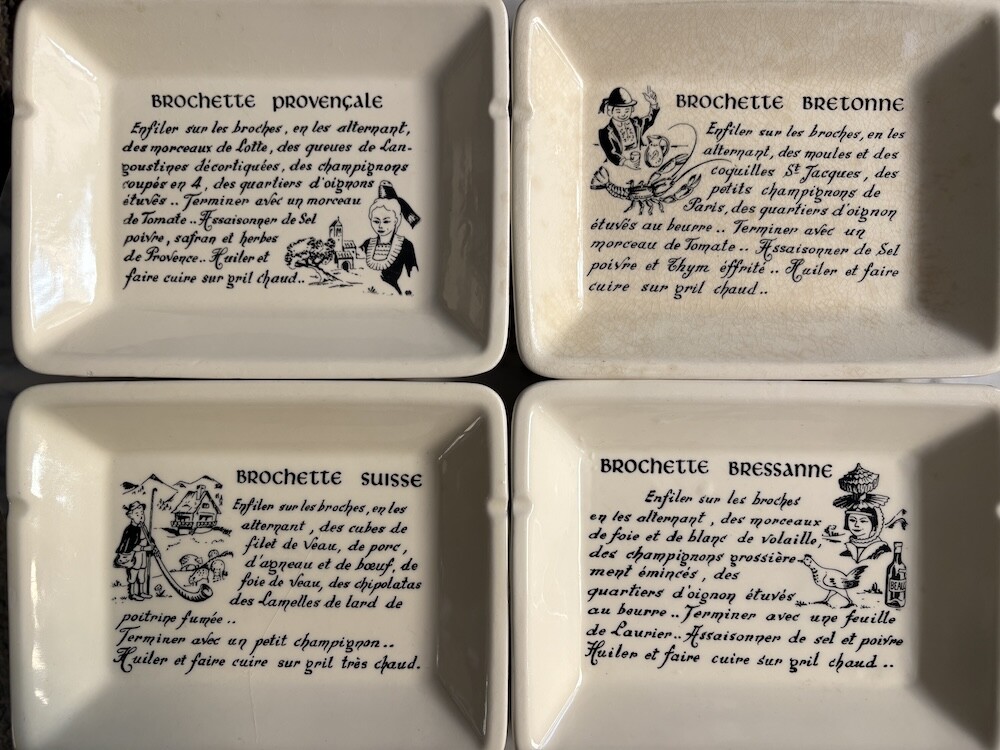 BROCHETTE PROVENÇALE
Enfiler sur les broches, en les alternant,
des morceaux de Lotte, des queues de Lan-
goustines décortiquées, des champignons
coupés en 4, des quartiers d'oignons
étuvés.. Terminer avec un morceau
de Tomate.. Assaisonner de Sel
poivre, safran et herbes
de Provence.. Huiler et
faire cuire sur gril chaud..
BROCHETTE BRETONNE
Enfiler sur les broches, en les
alternant, des moules et des
coquilles St Jacques, des
petits champignons de
Paris, des quartiers d'oignon
étuvés au beurre.. Terminer avec un
morceau de Tomate.. Assaisonner de Sel
poivre et Thym éffrité.. Huiler et faire
cuire sur gril chaud..
BROCHETTE SUISSE
Enfiler sur les broches, en les
alternant, des cubes de
filet de Veau, de porc,
d'agneau et de bœuf, de
foie de Veau, des chipolatas
des Lamelles de lard de
poitrine fumée..
Terminer avec un petit champignon..
Huiler et faire cuire sur gril très chaud.
BROCHETTE BRESSANNE
Enfiler sur les broches
en les alternant, des morceaux
de foie et de blanc de volaille,
des champignons grossière-
ment émincés, des
quartiers d'oignon étuvés
au beurre.. Terminer avec une feuille
de Laurier.. Assaisonner de sel et poivre
Huiler et faire cuire sur gril chaud..